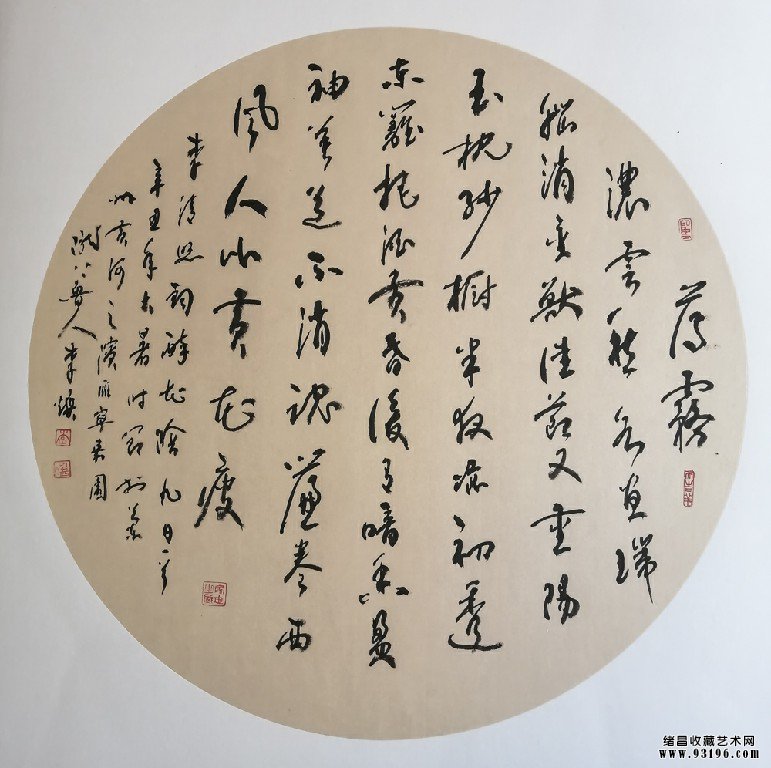 薄霧
濃雲愁永昼瑞
腦消金獸佳節又重陽
玉枕纱橱半夜凉初透
东籬把酒黄昏後有暗香盈
袖莫道不消魂簾卷西
風人比黄花瘦
李清照词醉花陰九日一首
辛丑年大暑时節於兰
州黄河之滨雁寧園
人李
绪昌收藏艺术网
www.93196.com